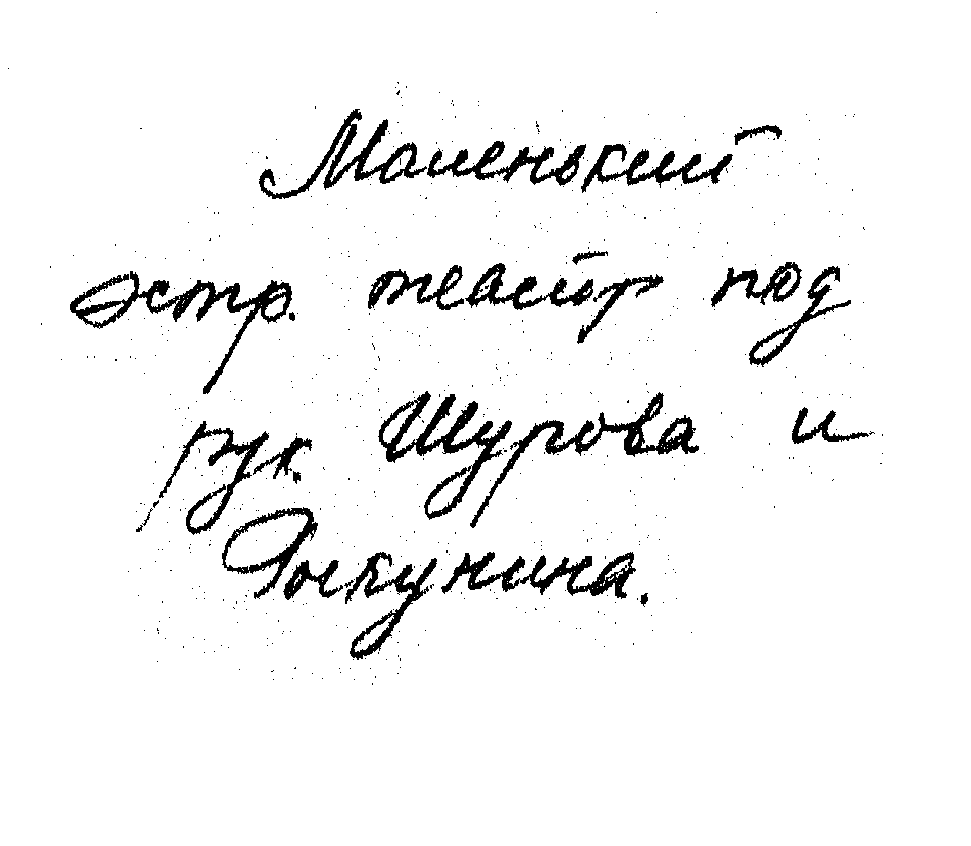 Маленький
эстр. театр под
рук. Шурова и
Рыкунина.